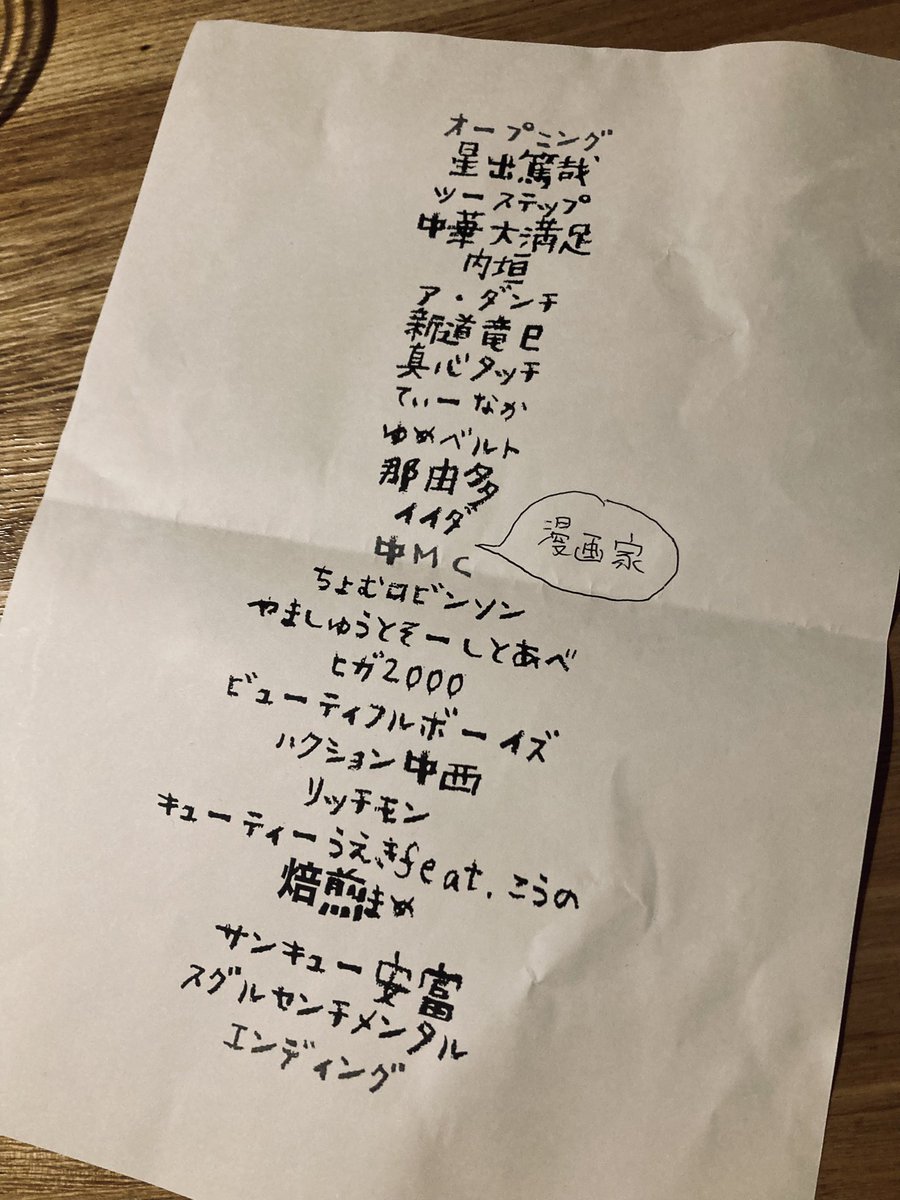 オープニング
星出篤哉
ツーステップ
中華大満足
内垣
ア・ダンチ
新道竜巳
真心タッチ
てぃーなか
ゆめベルト
那由多
イイダ
中MC
漫画家
ちょむロビンソン
やましゅうとそーしとあべ
ヒガ2000
ビューティフルボーイズ
ハクション中西
リッチモン
キューティーうえきfeat.こうの
焙煎まめ
サンキュー安富
スグルセンチメンタル
エンディング